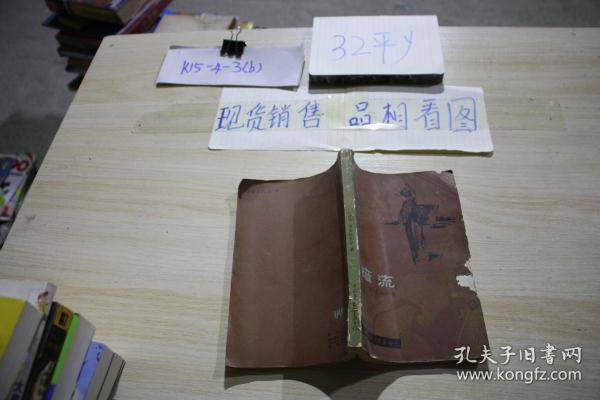 K15-4-3(b)
32平y
现货销售 品相看图
暗流
孔夫子旧书网
www.kongfz.com